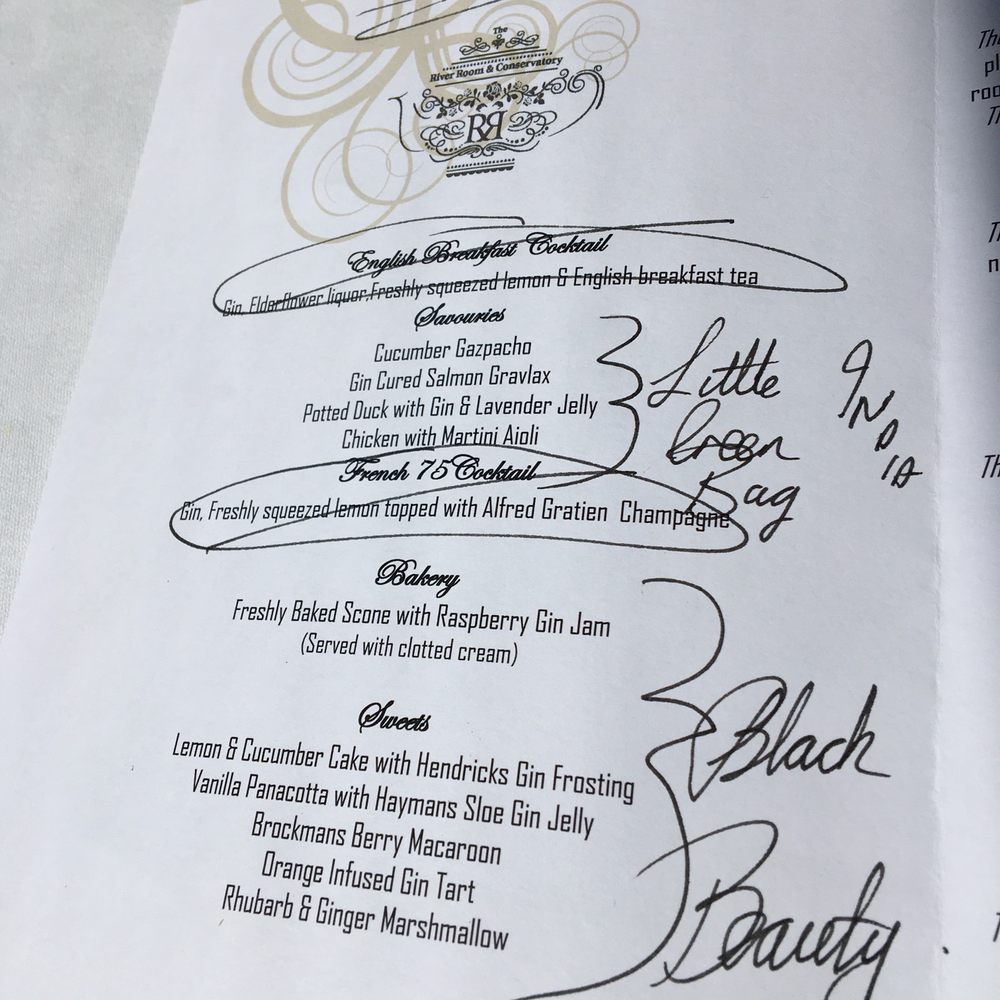 The
River Room & Conservatory
RR
English Breakfast Cocktail
Gin, Elderflower liquor,Freshly squeezed lemon & English breakfast tea
Savouries
Cucumber Gazpacho
Gin Cured Salmon Gravlax
Potted Duck with Gin & Lavender Jelly
Chicken with Martini Aioli
Little
Green
Bag
INDIA
French 75 Cocktail
Gin, Freshly squeezed lemon topped with Alfred Gratien Champagne
Bakery
Freshly Baked Scone with Raspberry Gin Jam
(Served with clotted cream)
Sweets
Lemon & Cucumber Cake with Hendricks Gin Frosting
Vanilla Panacotta with Haymans Sloe Gin Jelly
Brockmans Berry Macaroon
Orange Infused Gin Tart
Rhubarb & Ginger Marshmallow
Black
Beauty